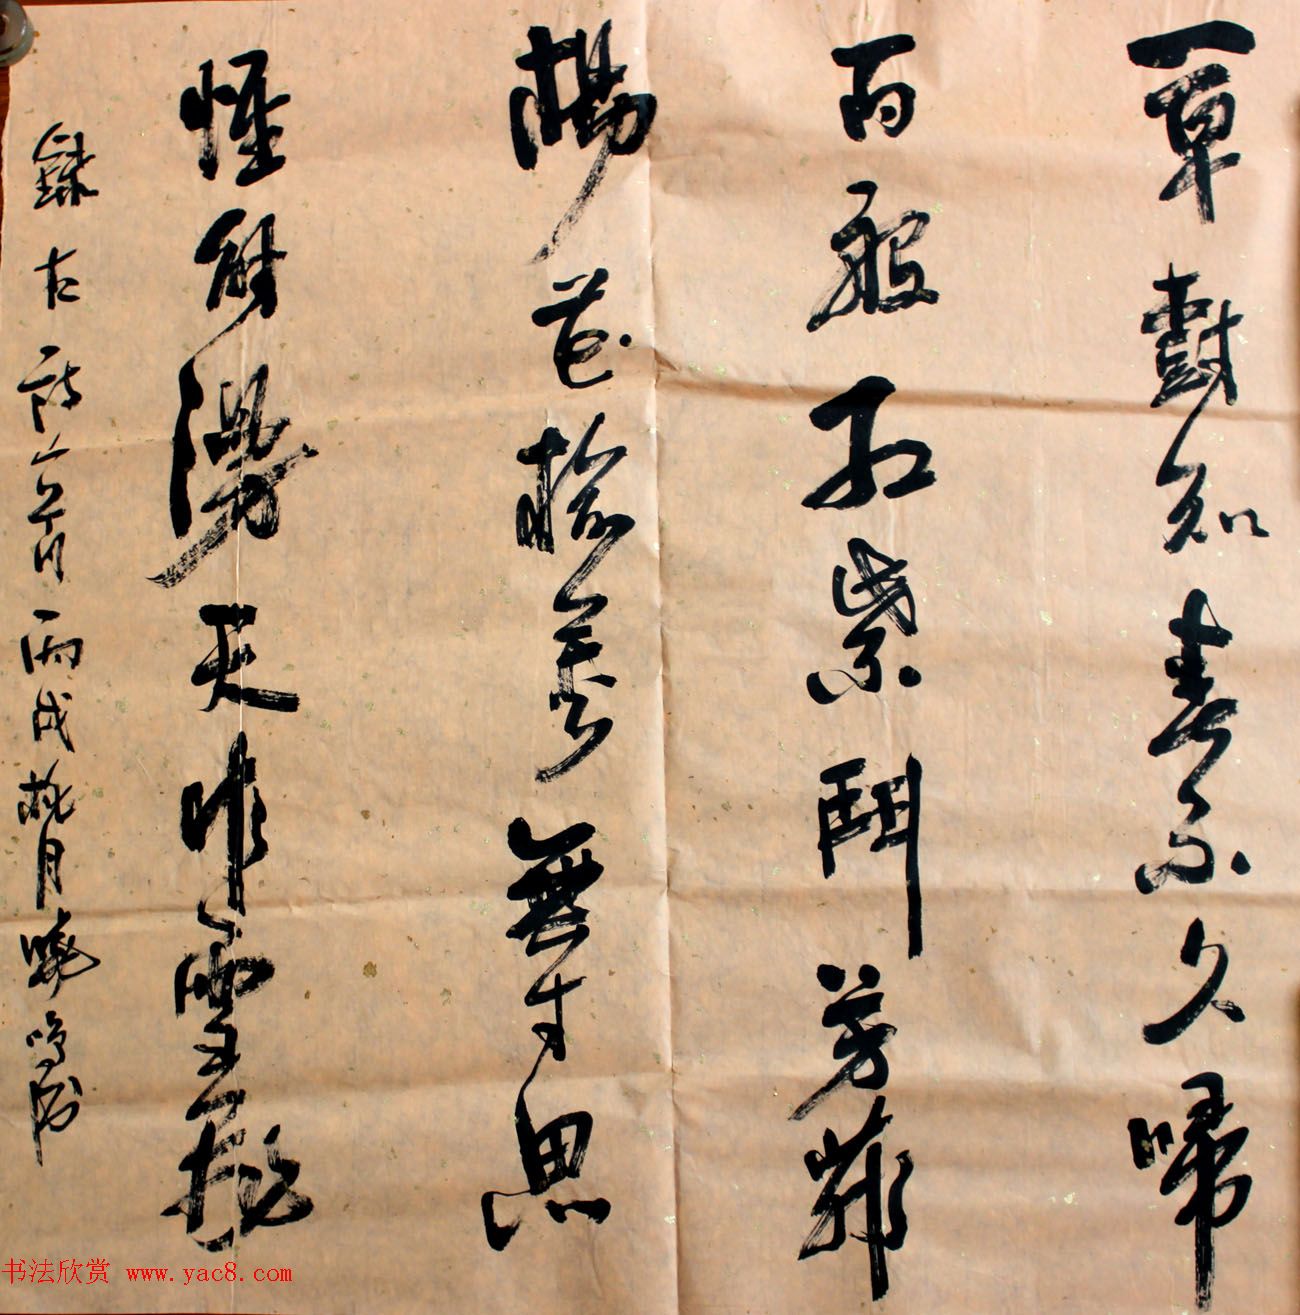 草樹知春不久歸
百般紅紫鬥芳菲
楊花榆莢無才思
惟解漫天作雪飛
錄古詩一首丙戌月曉鳴書
书法欣赏 www.yac8.com